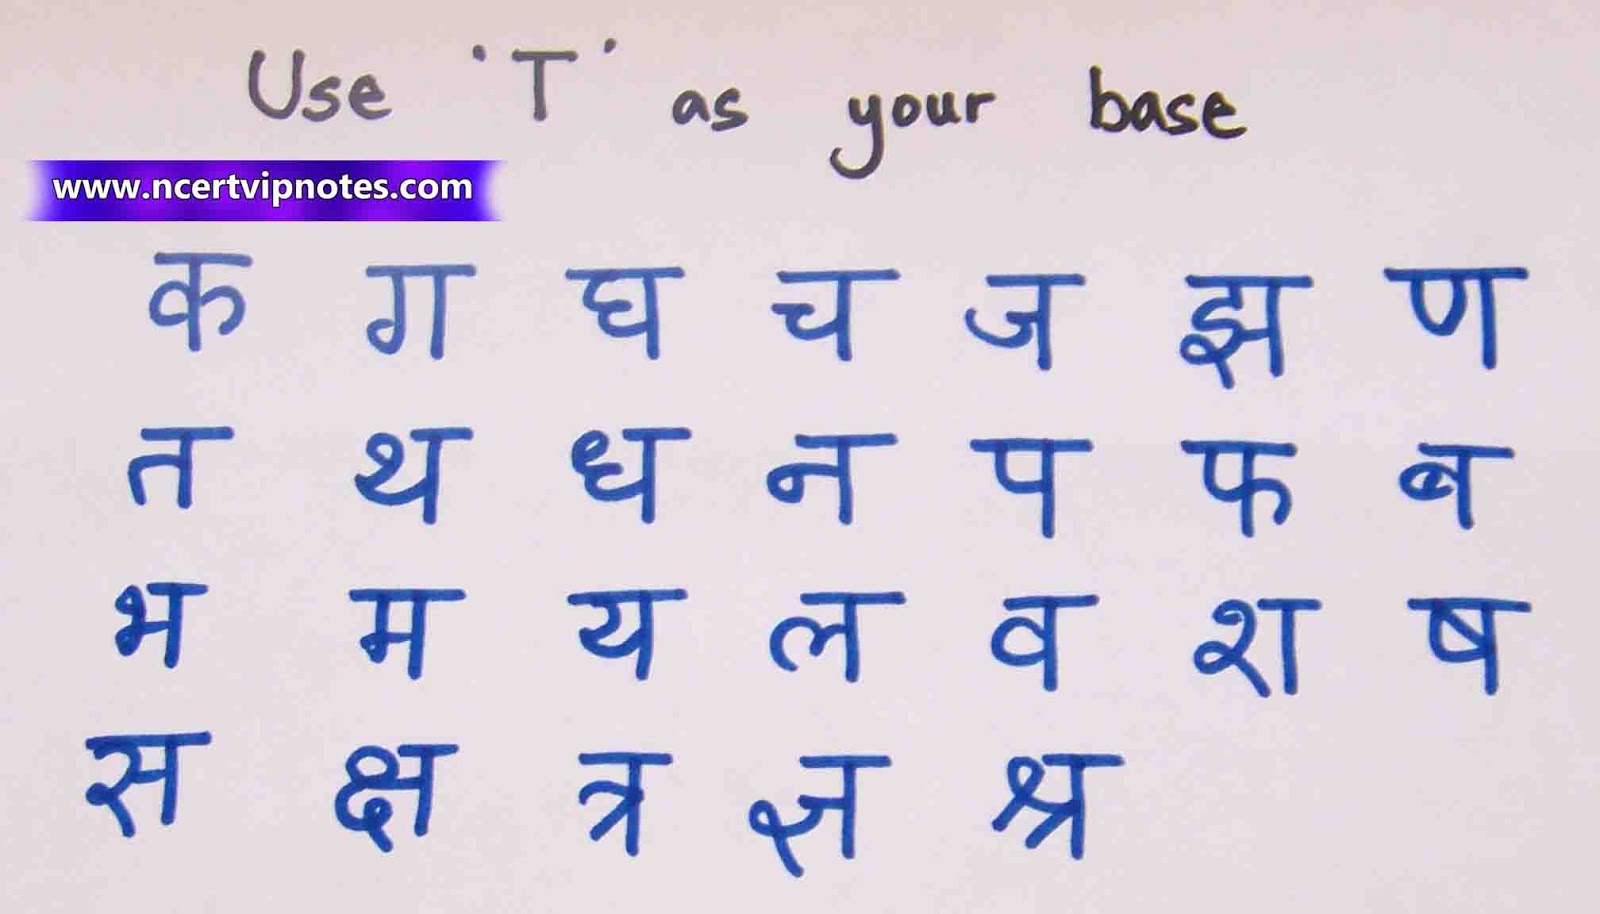 Use 'T' as your base
www.ncertvipnotes.com
क ग घ च ज झ ण
त थ ध न प फ ब
भ म य ल व श ष
स क्ष त्र ज्ञ श्र